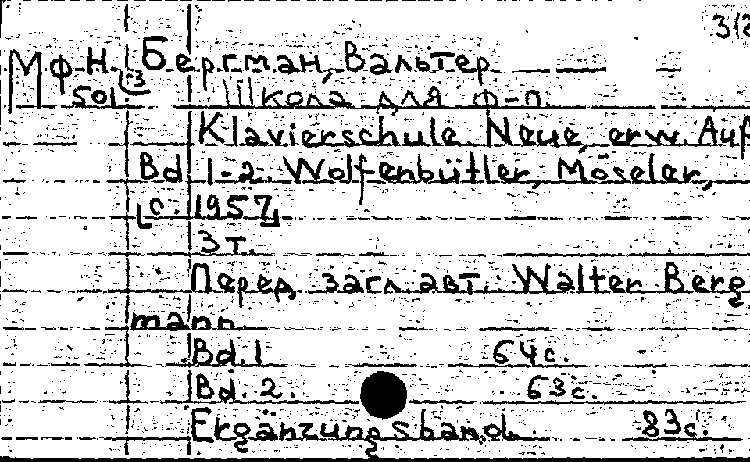 3(2
Мф Н. Бергман, Вальтер
501 3 Школа для ф-п.
Klavierschule. Neue, erw. Auf
Bd 1-2. Wolfenbüttler, Möseler,
[c. 1957].
3 т.
Перед загл. авт. Walter Berg
mann
Bd. 1 64 с.
Bd. 2. 63 с.
Ergänzungsband. 83 с.